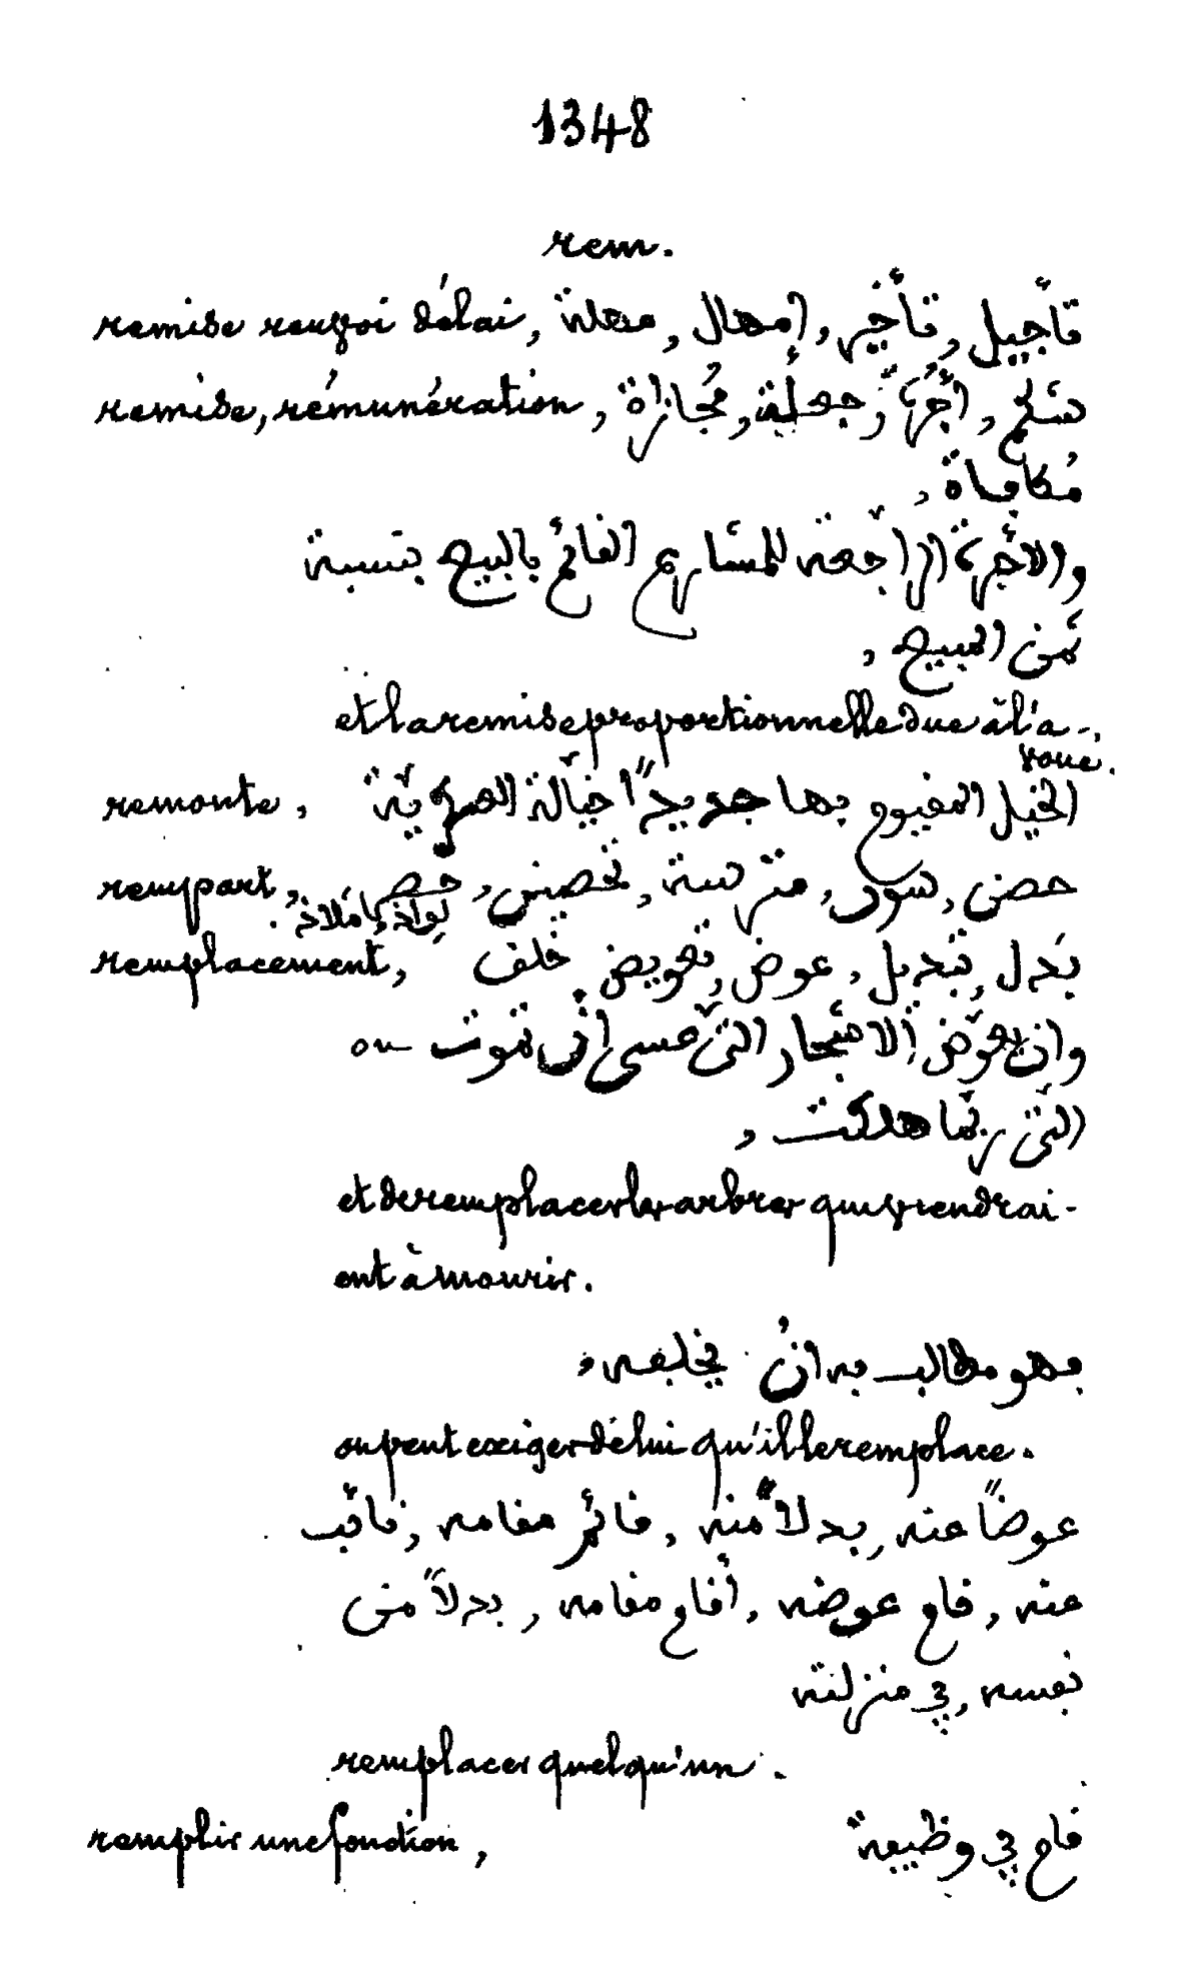 1348
rem.
remise renvoi délai, تأجيل, تأخير, إمهال, مهلة
remise, rémunération, سَلَم, أُجْرَةً, جعلية, مُجازاة,
مُكافاة,
والأجرة الراجعة للمشارع القائم بالبيع بنسبة
ثمن المبيع,
et la remise proportionnelle due à l'a-
voué.
remonte, الخيل المقيوم بها جديدًا خيّالة العسكريّة
rempart, حصن, سور, مترسة, تحصين,
لواذ, مَلاذ.
remplacement, بَدل, تبديل, عوض, تعويض, خلف
وان يعوّض الاشجار التي عسى ان تموت ou
التي ربّما هلكت,
et de remplacer les arbres qui viendrai-
ent à mourir.
فهو مطالب به انْ يخلفه,
on peut exiger de lui qu'il le remplace.
عوضًا عنه, بدلاً منه, قائم مقامه, نائب
عنه, قام عوضه, أقام مقامه, بدلاً من
نفسه, في منزلته
remplacer quelqu'un.
remplir une fonction, قام في وظيفة